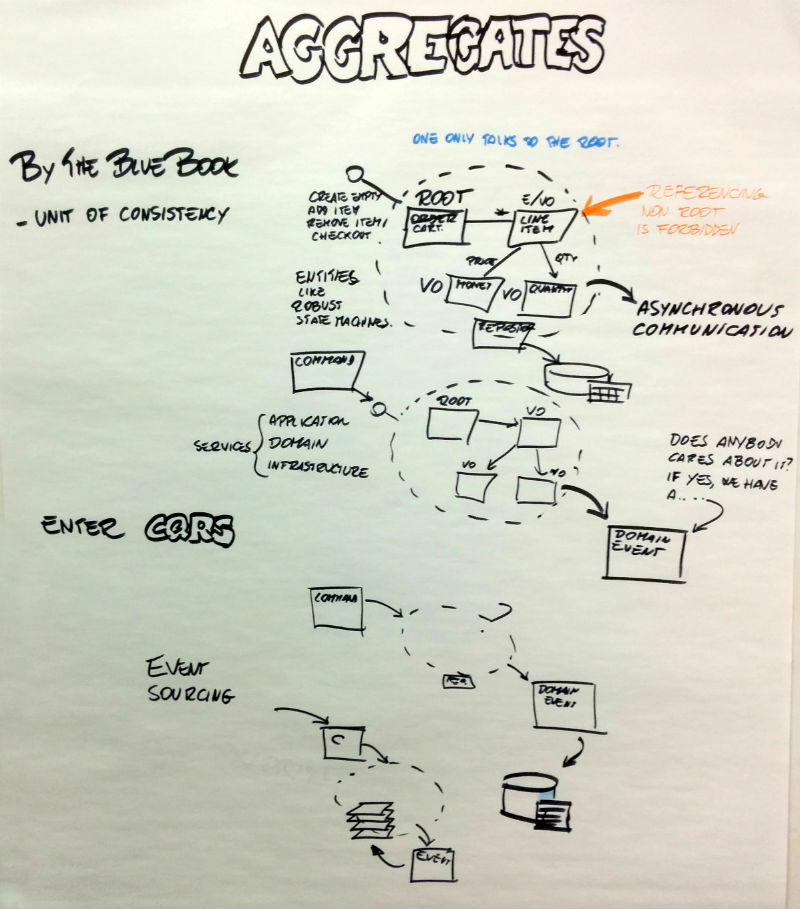 AGGREGATES
ONE ONLY TALKS TO THE ROOT.
BY THE BLUE BOOK
- UNIT OF CONSISTENCY
CREATE EMPTY
ADD ITEM
REMOVE ITEM/
CHECKOUT
ROOT
ORDER
CART.
E/VO
LINE
ITEM
REFERENCING
NON ROOT
IS FORBIDDEN
PRICE
QTY
VO
MONEY
VO
QUANTITY
ENTITIES
LIKE
ROBUST
STATE MACHINES.
ASYNCHRONOUS
COMMUNICATION
COMMAND
SERVICES
APPLICATION
DOMAIN
INFRASTRUCTURE
ROOT
VO
VO
VO
DOES ANYBODY
CARES ABOUT IT?
IF YES, WE HAVE
A....
DOMAIN
EVENT
ENTER CQRS
COMMAND
DOMAIN
EVENT
EVENT
SOURCING
C
EVENT